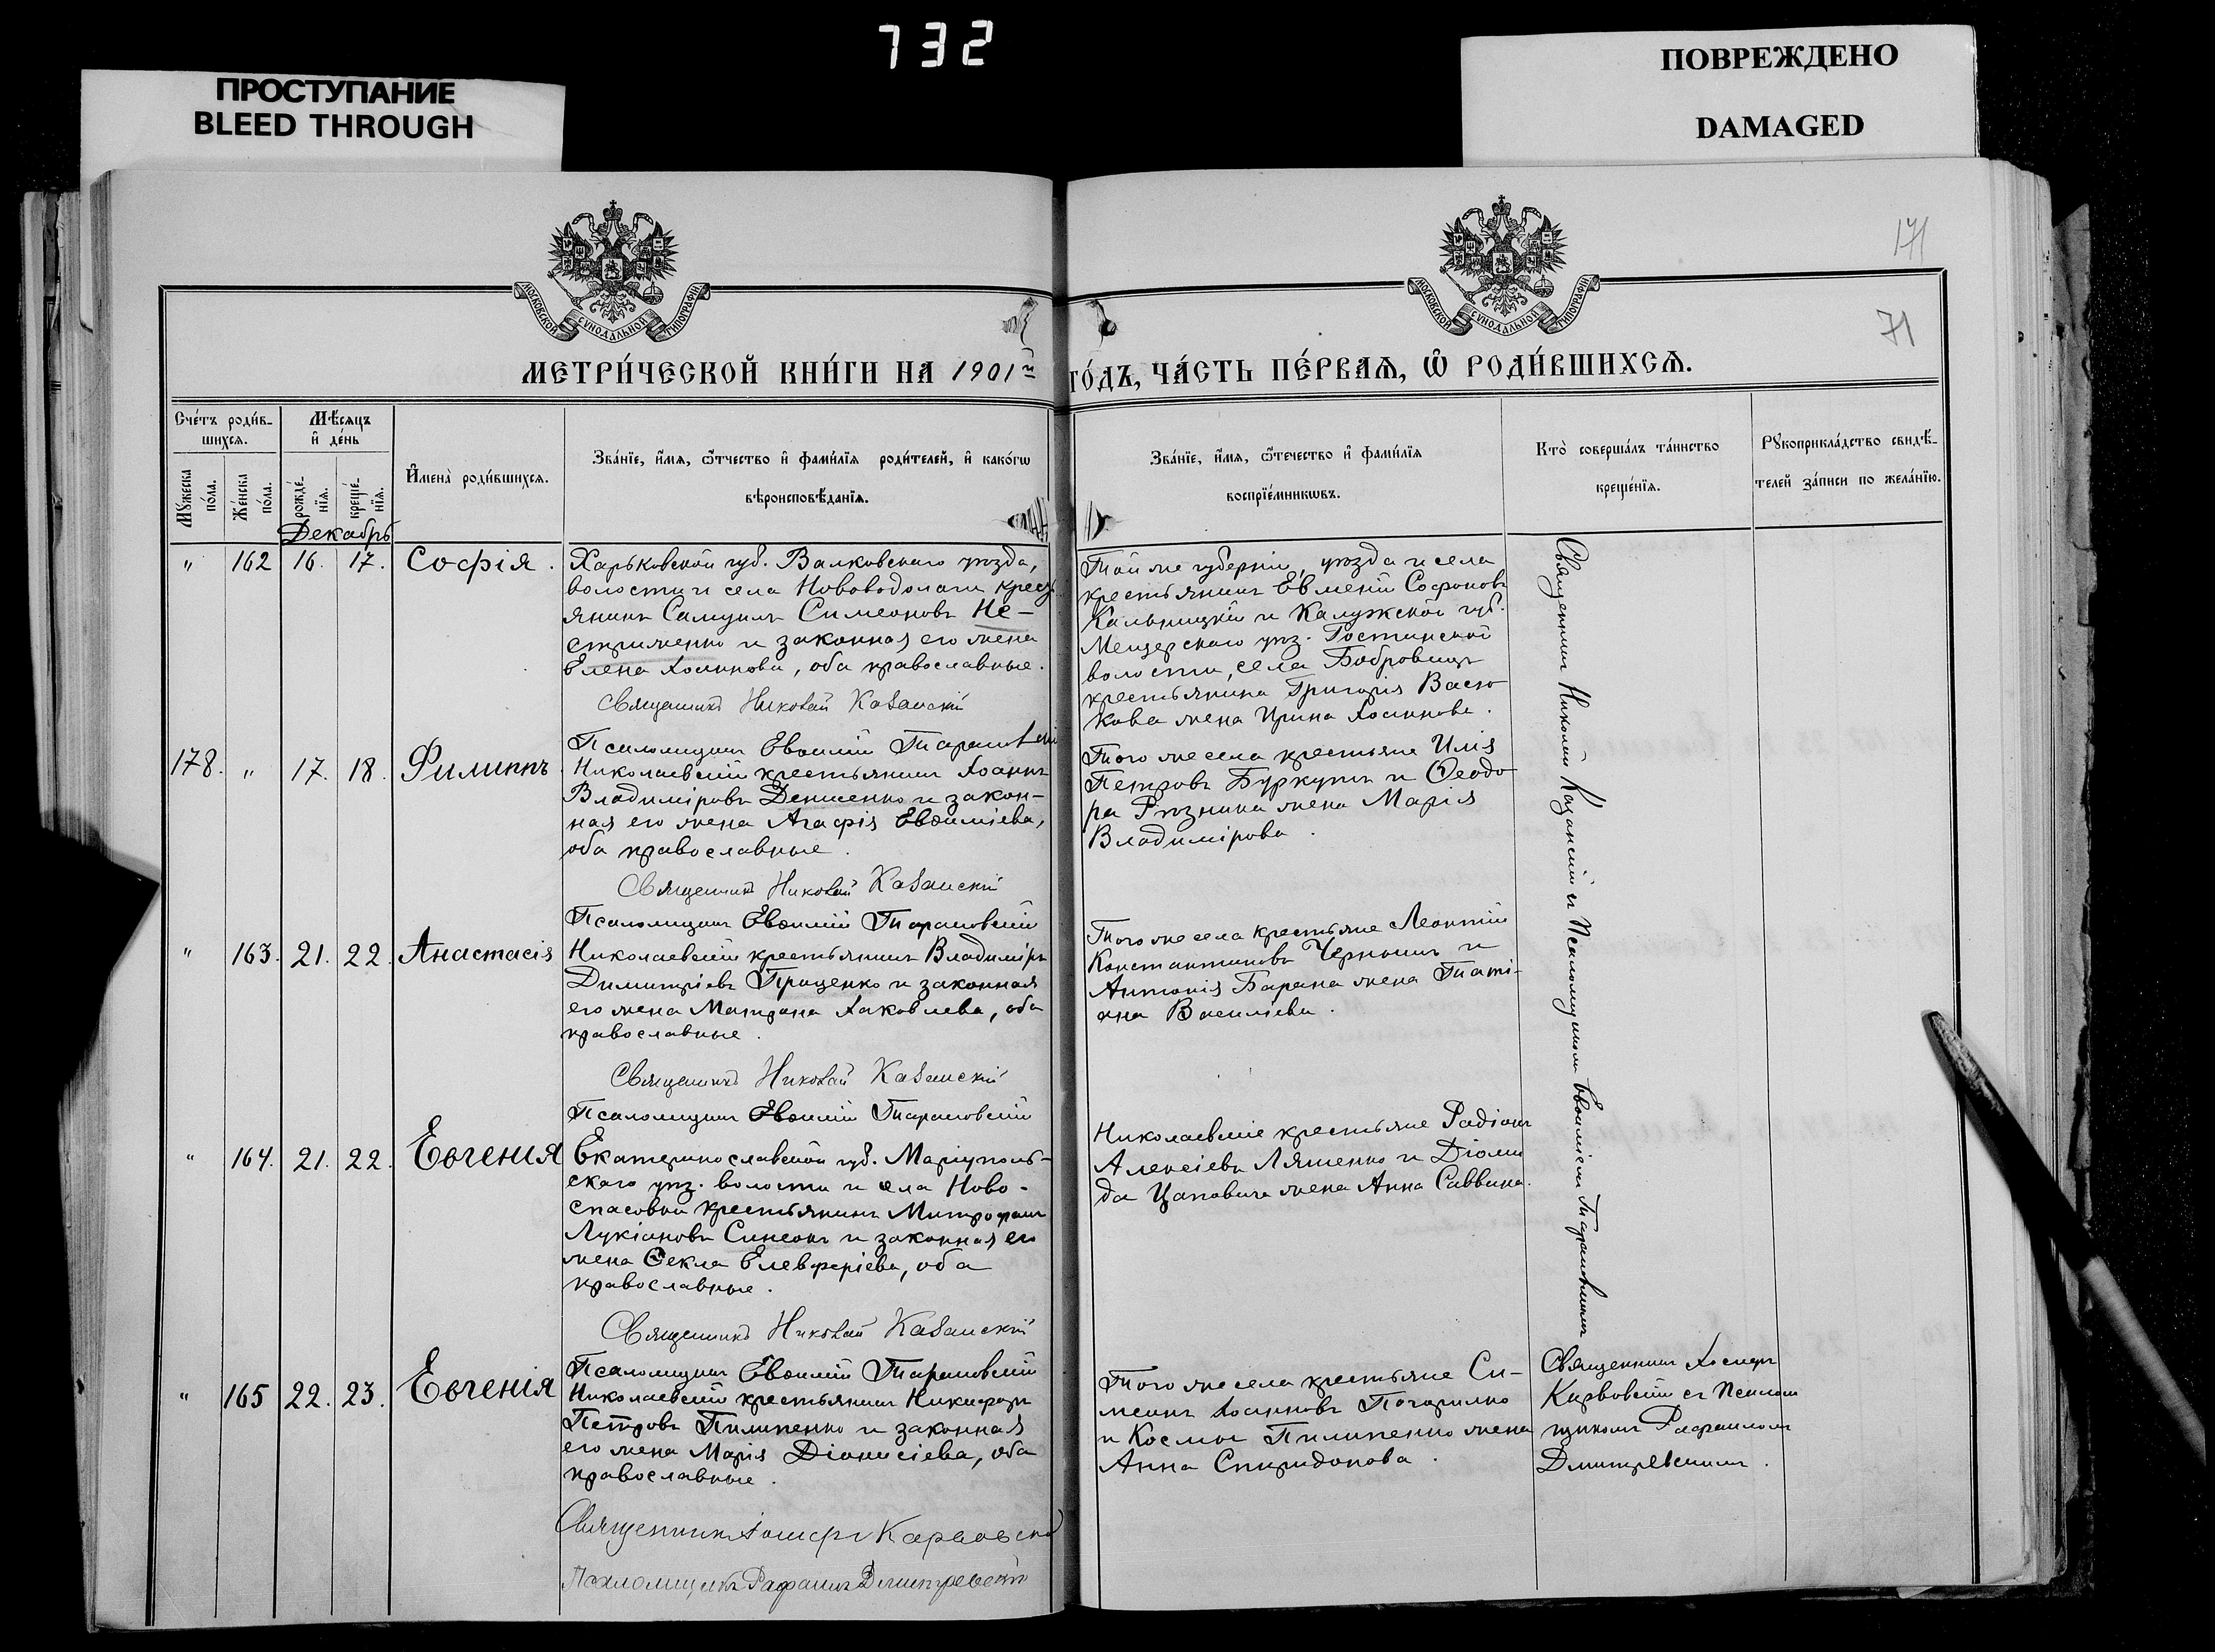 732
ПРОСТУПАНИЕ
BLEED THROUGH
ПОВРЕЖДЕНО
DAMAGED
171
71
МОСКОВСКОЙ СУНОДАЛЬНОЙ ТИПОГРАФІИ
МОСКОВСКОЙ СУНОДАЛЬНОЙ ТИПОГРАФІИ
МЕТРИ́ЧЕСКОЙ КНИ́ГИ НА 1901й ГО́ДЪ, ЧА́СТЬ ПЕ́РВАѦ, Ѡ҆ РОДИ́ВШИХСѦ.
Сче́тъ роди́в-
шихсѧ.
Мꙋжеска
по́ла.
Же́нска
по́ла.
Мѣ́сѧцъ
и҆ де́нь
рожде́-
нїѧ.
креще́-
нїѧ.
Декабрь
И҆мена̀ роди́вшихсѧ.
Зва́нїе, и҆́мѧ, ѻ҆́тчество и҆ фами́лїѧ роди́телей, и҆ како́гѡ
вѣроисповѣ́данїѧ.
Зва́нїе, и҆́мѧ, ѻ҆́течество и҆ фами́лїѧ
воспрїе́мникѡвъ.
Кто̀ соверша́лъ та́инство
креще́нїѧ.
Рꙋкоприкла́дство свидѣ́-
телей за́писи по жела́нїю.
" 162 16. 17. Софія.
Харьковской губ. Валковскаго уѣзда,
волости и села Нововодолаги кресть
янинъ Самуилъ Симеоновъ Не-
стриженко и законная его жена
Елена Іоаннова, оба православные.
Священникъ Николай Казанскій
Псаломщикъ Евѳимій Тарановскій
Той же губерніи, уѣзда и села
крестьянинъ Евменій Софоновъ
Кальницкій и Калужской губ.
Мещерскаго уѣз.
волости, села Бобровицъ
крестьянина Григорія Васю
кова жена Ирина Іоаннова.
Священникъ Николай Казанскій и Псаломщикомъ Евѳиміемъ Тарановскимъ
178. " 17. 18. Филиппъ.
Николаевскій крестьянинъ Іоаннъ
Владиміровъ Денисенко и закон-
ная его жена Агафія Евѳиміева,
оба православные.
Священникъ Николай Казанскій
Псаломщикъ Евѳимій Тарановскій
Того же села крестьяне Илія
Петровъ Буркутъ и Ѳеодо
ра Рѣзника жена Марія
Владимірова.
" 163. 21. 22. Анастасія
Николаевскій крестьянинъ Владиміръ
Димитріевъ Проценко и законная
его жена Матрона Іаковлева, оба
православные.
Священникъ Николай Казанскій
Псаломщикъ Евѳимій Тарановскій
Того же села крестьяне Леонтій
Константиновъ Чернышъ и
Антонія Барана жена Таті-
ана Василіева.
" 164. 21. 22. Евгенія
Екатеринославской губ. Маріуполь-
скаго уѣз. волости и села Ново-
спасовки крестьянинъ Митрофанъ
Лукіановъ Синсонъ и законная его
жена Ѳекла Елевферіева, оба
православные.
Священникъ Николай Казанскій
Псаломщикъ Евѳимій Тарановскій
Николаевскіе крестьяне Радіонъ
Алексіевъ Ляшенко и Діоми
да Цаповича жена Анна Саввина.
" 165 22. 23. Евгенія
Николаевскій крестьянинъ Никифоръ
Петровъ Пилипенко и законная
его жена Марія Діонисіева, оба
православные.
Священникъ Іосифъ Карповскій
Псаломщикъ Рафаилъ Дмитревскій
Того же села крестьяне Си-
меонъ Іоанновъ Погорилко
и Космы Пилипенко жена
Анна Спиридонова.
Священникъ Іосифъ
Карповскій съ Псалом
щикомъ Рафаиломъ
Дмитревскимъ.